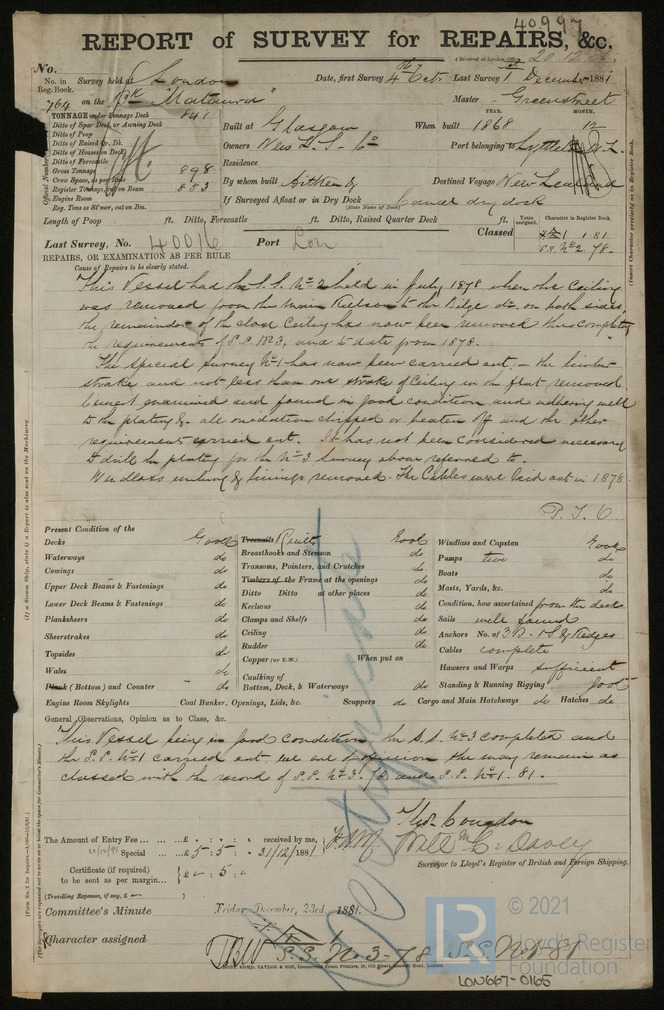 40997
REPORT of SURVEY for REPAIRS, &c.
(Received at London Office 20.12
No.
No. in Reg. Book. Survey held at London Date, first Survey 4th Oct. Last Survey 1st December 1881
764 on the Bk "Mataura" Master Greenstreet
TONNAGE under Tonnage Deck 841
Ditto of Spar Deck, or Awning Deck
Ditto of Poop
Ditto of Raised Qr. Dk.
Ditto of Houses on Deck
Ditto of Forecastle
Gross Tonnage 898
Crew Space, as per Rule
Register Tonnage, cut on Beam 853
Engine Room
Reg. Tons as St'mer, cut on Bm.
Official Number
YEAR. MONTH.
Built at Glasgow When built 1868 12
Owners New Z. S. Co Port belonging to Lyttelton N.Z.
Residence
By whom built Aitken & Destined Voyage New Zealand
If Surveyed Afloat or in Dry Dock
(State Name of Dock) dry dock
Length of Poop ft. Ditto, Forecastle ft. Ditto, Raised Quarter Deck ft.
Years assigned. Character in Register Book.
Classed 1 1.81
S.S. No 2 78.
(Insert Character precisely as in Register Book.
Last Survey, No. 40016 Port Lon
REPAIRS, OR EXAMINATION AS PER RULE
Cause of Repairs to be clearly stated.
This Vessel had the S.S. No 2 held in July 1878 when the Ceiling
was removed from the main Keelson to the Bilge &c. on both sides,
the remainder of the close Ceiling has now been removed thus completing
the requirements of S.S. No 3, and to date from 1878.
The special survey No 1 has now been carried out; – the limber
strake and not less than one strake of Ceiling in the flat removed.
Cement examined and found in good condition and adhering well
to the plating &c. all oxidation chipped or beaten off and the other
requirements carried out. It has not been considered necessary
to drill the plating for the No 3 Survey above referred to.
Windlass unhung & linings removed. The Cables were laid out in 1878
P.T.O
(If a Steam Ship, state if a Report is also sent on the Machinery.
Present Condition of the
Decks Good
Waterways do
Comings do
Upper Deck Beams & Fastenings do
Lower Deck Beams & Fastenings do
Planksheers do
Sheerstrakes do
Topsides do
Wales do
Plank (Bottom) and Counter do
Engine Room Skylights
Treenails Rivets Good
Breasthooks and Stemson do
Transoms, Pointers, and Crutches do
Timbers of the Frame at the openings do
Ditto Ditto at other places do
Keelsons do
Clamps and Shelfs do
Ceiling do
Rudder do
Copper (or Y.M.) When put on
Caulking of
Bottom, Deck, & Waterways do
Coal Bunker, Openings, Lids, &c. Scuppers do
Windlass and Capstan Good
Pumps two do
Boats do
Masts, Yards, &c. do
Condition, how ascertained from the deck
Sails well found
Anchors No. of 3 B. 1 S. & Kedges
Cables complete
Hawsers and Warps sufficient
Standing & Running Rigging good
Cargo and Main Hatchways do Hatches do
General Observations, Opinion as to Class, &c.
This Vessel being in good condition, the S.S. No 3 completed and
the S.S. No 1 carried out we are of opinion she may remain as
classed with the record of S.S. No 3. 78 and S.S. No 1. 81.
Thos Congdon
The Amount of Entry Fee ... ... £ : : received by me,
Special ... ... £ 5 : 5 : 31/12/1881
Surveyor to Lloyd's Register of British and Foreign Shipping.
Certificate (if required)
to be sent as per margin... } £ : 5 :
(Travelling Expenses, if any, £
Committee's Minute Friday December, 23rd, 1881.
Character assigned
S.S. No 3-78 S.S. No 1-81
© 2021
LR
Lloyd's Register
Foundation
LON667-0165